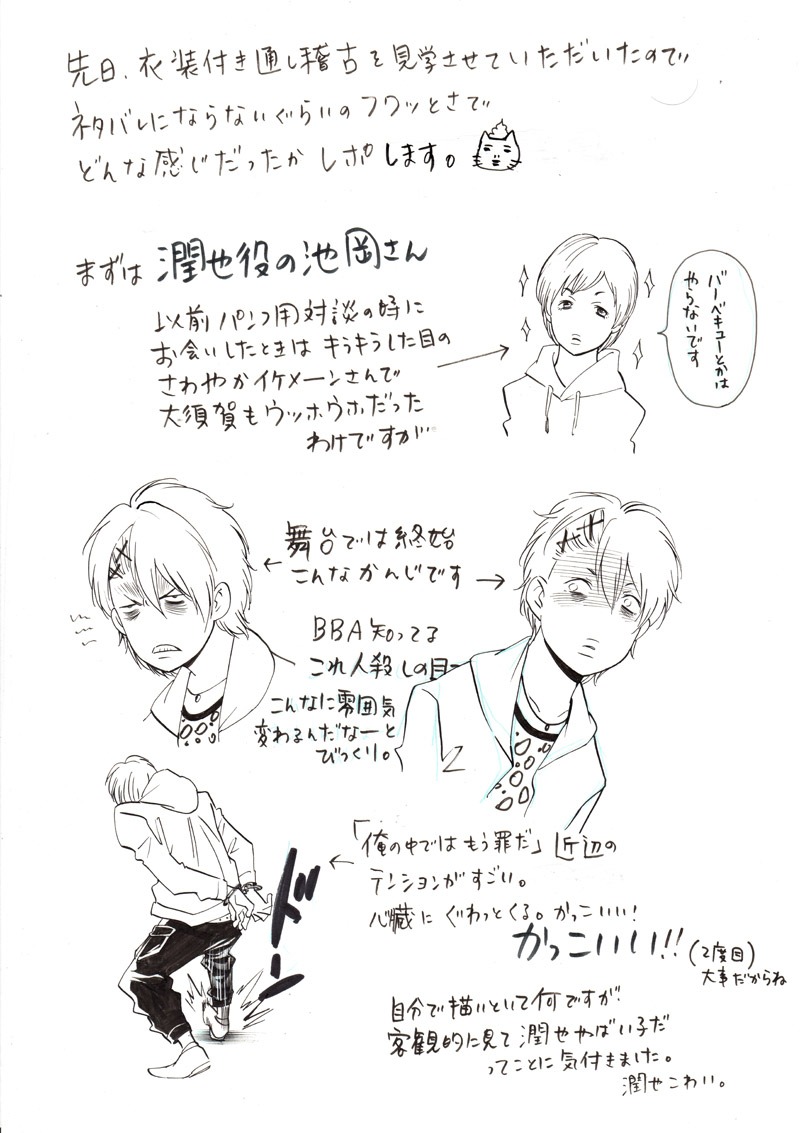 先日、衣装付き通し稽古を見学させていただいたので
ネタバレにならないぐらいのフワッとさで
どんな感じだったかレポします。
まずは 潤也役の池岡さん
以前パンフ用対談の時に
お会いしたときは キラキラした目の
さわやかイケメーンさんで
大須賀もウッホウホだった
わけですが
バーベキューとかは
やらないです
舞台では終始
こんなかんじです
BBA知ってる
これ人殺しの目
こんなに雰囲気
変わるんだなーと
びっくり。
「俺の中ではもう罪だ」近辺の
テンションがすごい。
心臓にぐわっとくる。かっこいい!
かっこいい!!(2度目)
大事だからね
ドーン
自分で描いといて何ですが
客観的に見て潤也やばい子だ
ってことに気付きました。
潤也こわい。